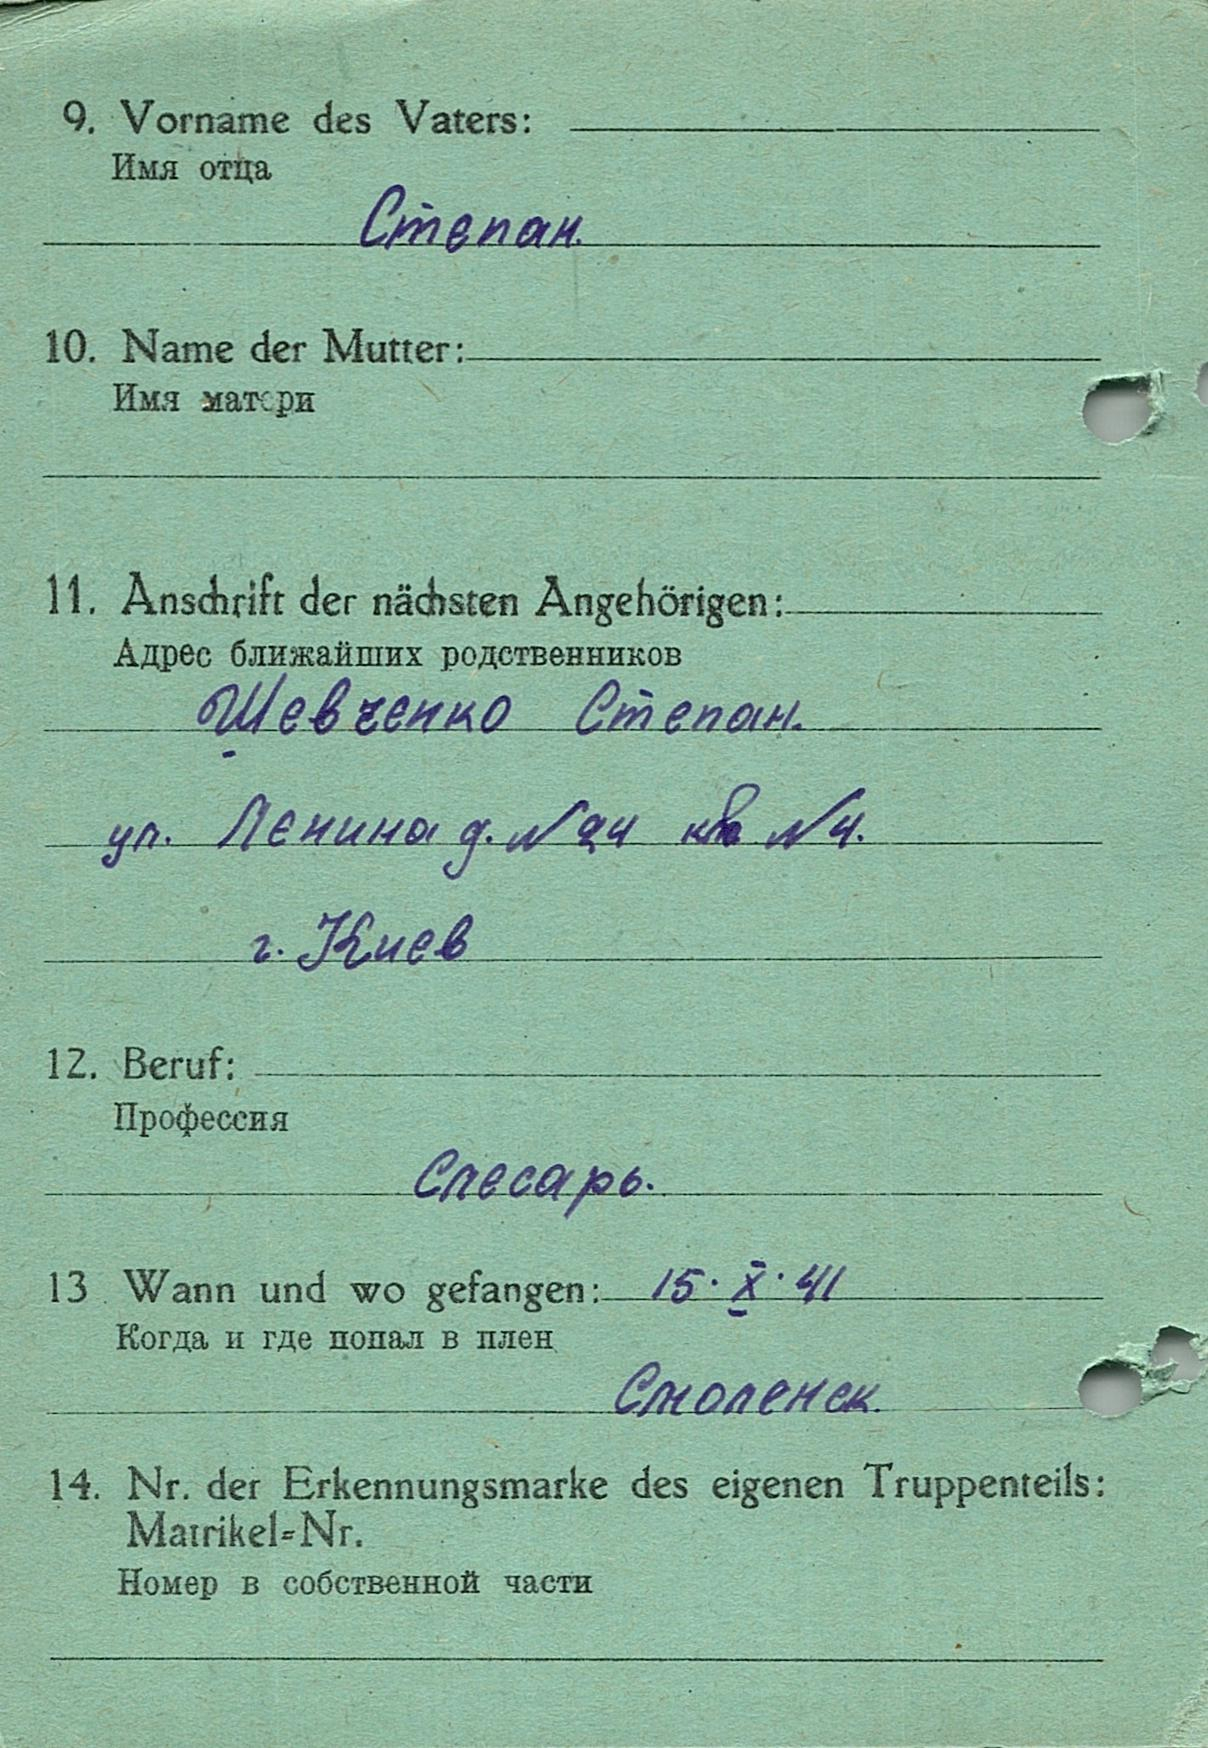 9. Vorname des Vaters:
Имя отца
Степан.
10. Name der Mutter:
Имя матери
11. Anschrift der nächsten Angehörigen:
Адрес ближайших родственников
Шевченко Степан.
ул. Ленина д. № 24 кв № 4.
г. Киев
12. Beruf:
Профессия
Слесарь.
13 Wann und wo gefangen: 15. X. 41
Когда и где попал в плен
Смоленск.
14. Nr. der Erkennungsmarke des eigenen Truppenteils:
Matrikel=Nr.
Номер в собственной части